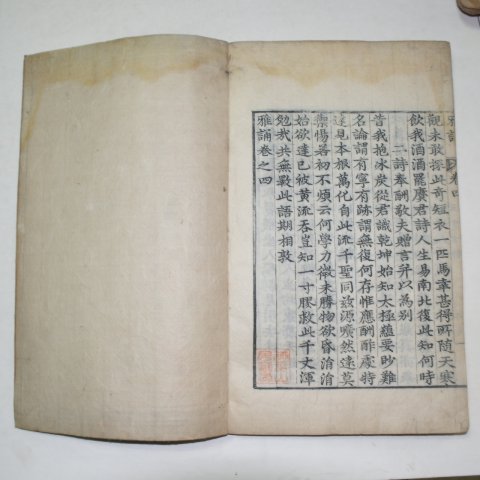 雅誦 卷四
觀未敢探此奇短衣一匹馬幸甚得所隨天寒
飲我酒酒罷賡君詩人生易南北復此知何時
二詩奉酬敬夫贈言并以為別
昔我抱冰炭從君識乾坤始知太極蘊要眇難
名論謂有寧有跡謂無復何存惟應酬酢處特
達見本根萬化自此流千聖同茲源曠然遠莫
禦惕若初不煩云何學力微未勝物欲昏涓涓
始欲達已被黃流吞豈知一寸膠救此千丈渾
勉哉共無斁此語期相敦
雅誦卷之四